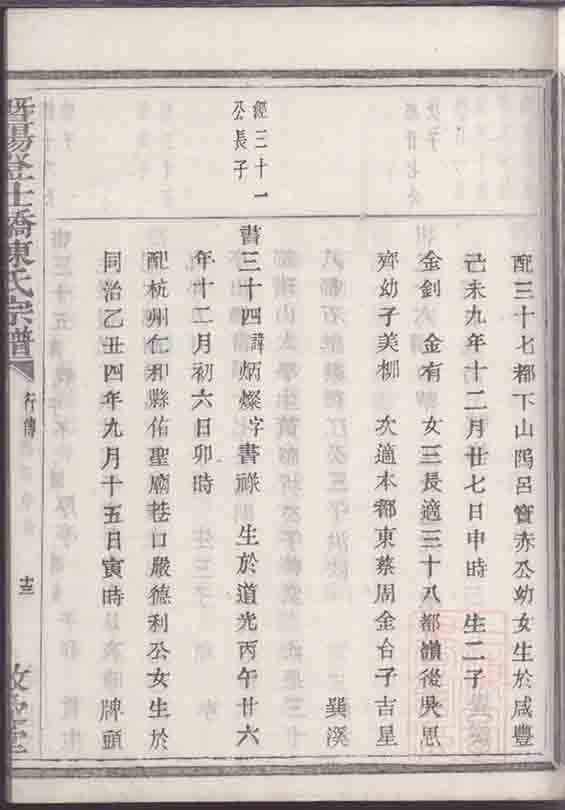 配三十七都下山隖呂寶赤公幼女生於咸豐
己未九年十二月廿七日申時 生二子
金釗 金有 女三長適三十八都嶺後吳思
齊幼子美柳 次適本都東蔡周金台子吉星
巽溪
經三十一
公長子
書三十四諱炳燦字書祿 生於道光丙午廿六
年十二月初六日卯時
配杭州仁和縣佑聖廟巷口嚴德利公女生於
同治乙丑四年九月十五日寅時 牌頭
暨陽登仕橋陳氏宗譜
行傳
十三